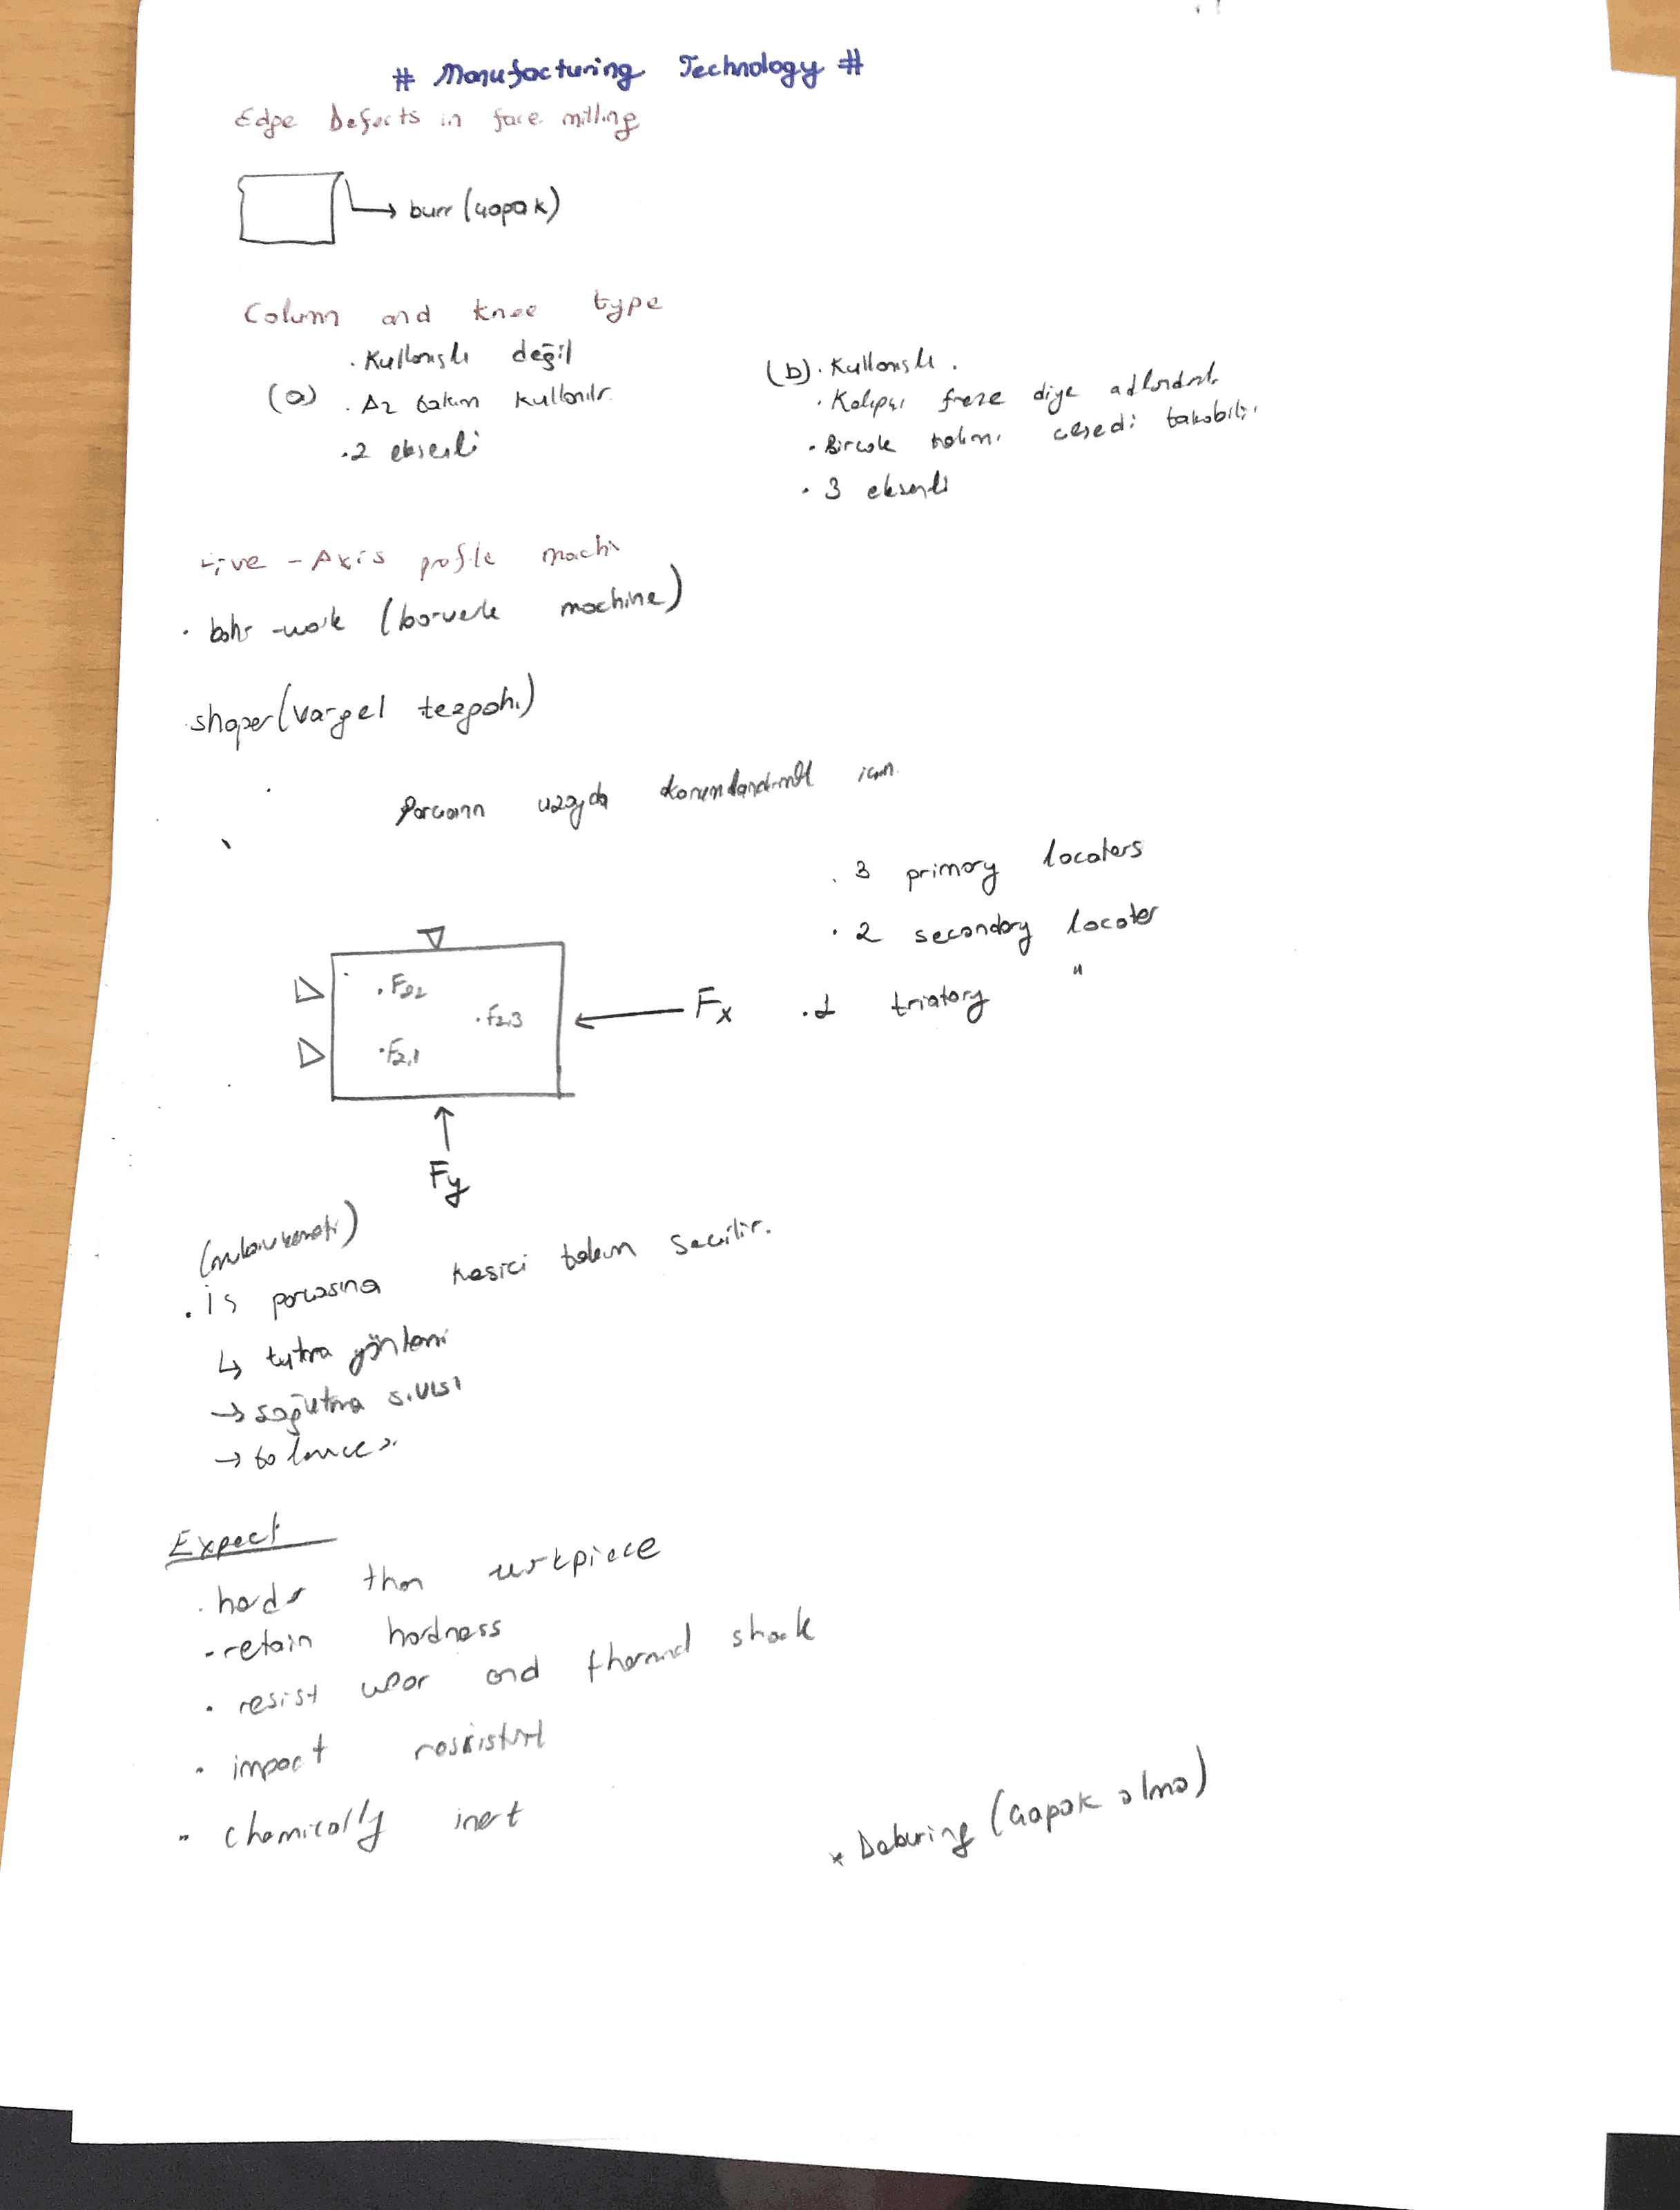 # Manufacturing Technology #
Edge Defects in face milling
burr (çapak)
Column and knee type
(a)
. Kullanışlı değil
. Az takım kullanılır.
. 2 eksenli
(b) . Kullanışlı .
. Kalıpçı freze diye adlandırılır.
. Birçok takım çeşedi takabilir.
. 3 eksenli
Five - Axis profile machi
. bohr -work (borverk machine)
shaper (vargel tezgahı)
Parçanın uzayda konumlandırmak için
. 3 primary locaters
. 2 secondary locater
. 1 triatory "
Fx
Fy
Fz,2
Fz,3
Fz,1
. iş parçasına kesici takım seçilir.
↳ tutma yöntemi
→ soğutma sıvısı
→ tolerans
Expect
. harder than workpiece
. retain hardness
. resist wear and thermal shock
. impact ressistant
. chemically inert
* Deburing (çapak alma)